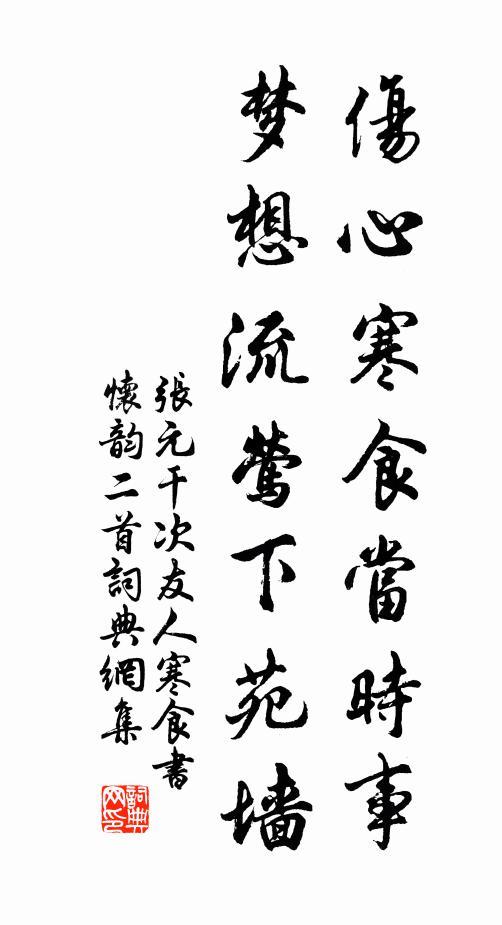 傷心寒食當時事
梦想流鶯下苑墙
張元干次友人寒食書
懷韵二首詞典網集
詞典
网印